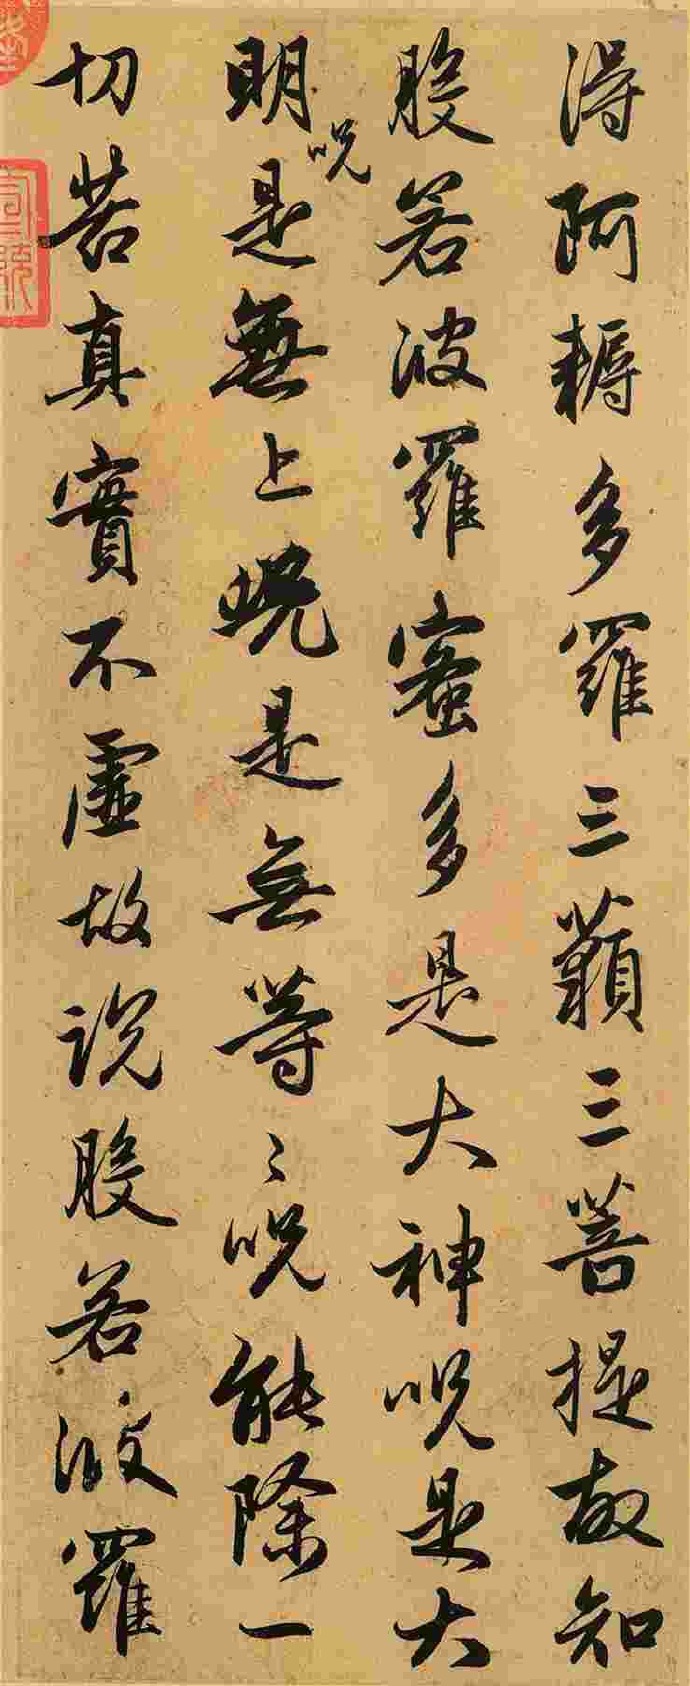 得阿耨多羅三藐三菩提故知
般若波羅蜜多是大神呪是大
明呪是無上呪是無等〻呪能除一
切苦真實不虛故說般若波羅